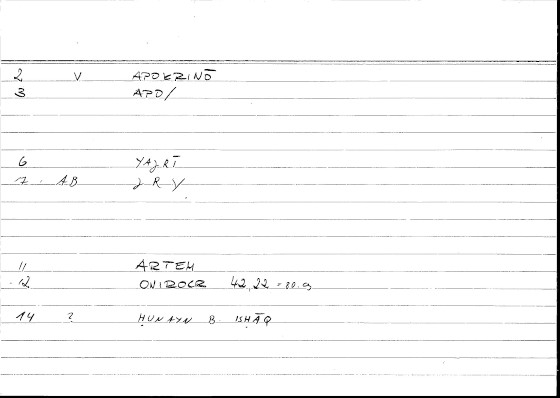 2 V APOKRINŌ
3 APO/
6 YAJRĪ
7 AB J R Y
11 ARTEM
12 ONIROCR 42,22 =
14 ? ḤUNAYN B. ISḤĀQ